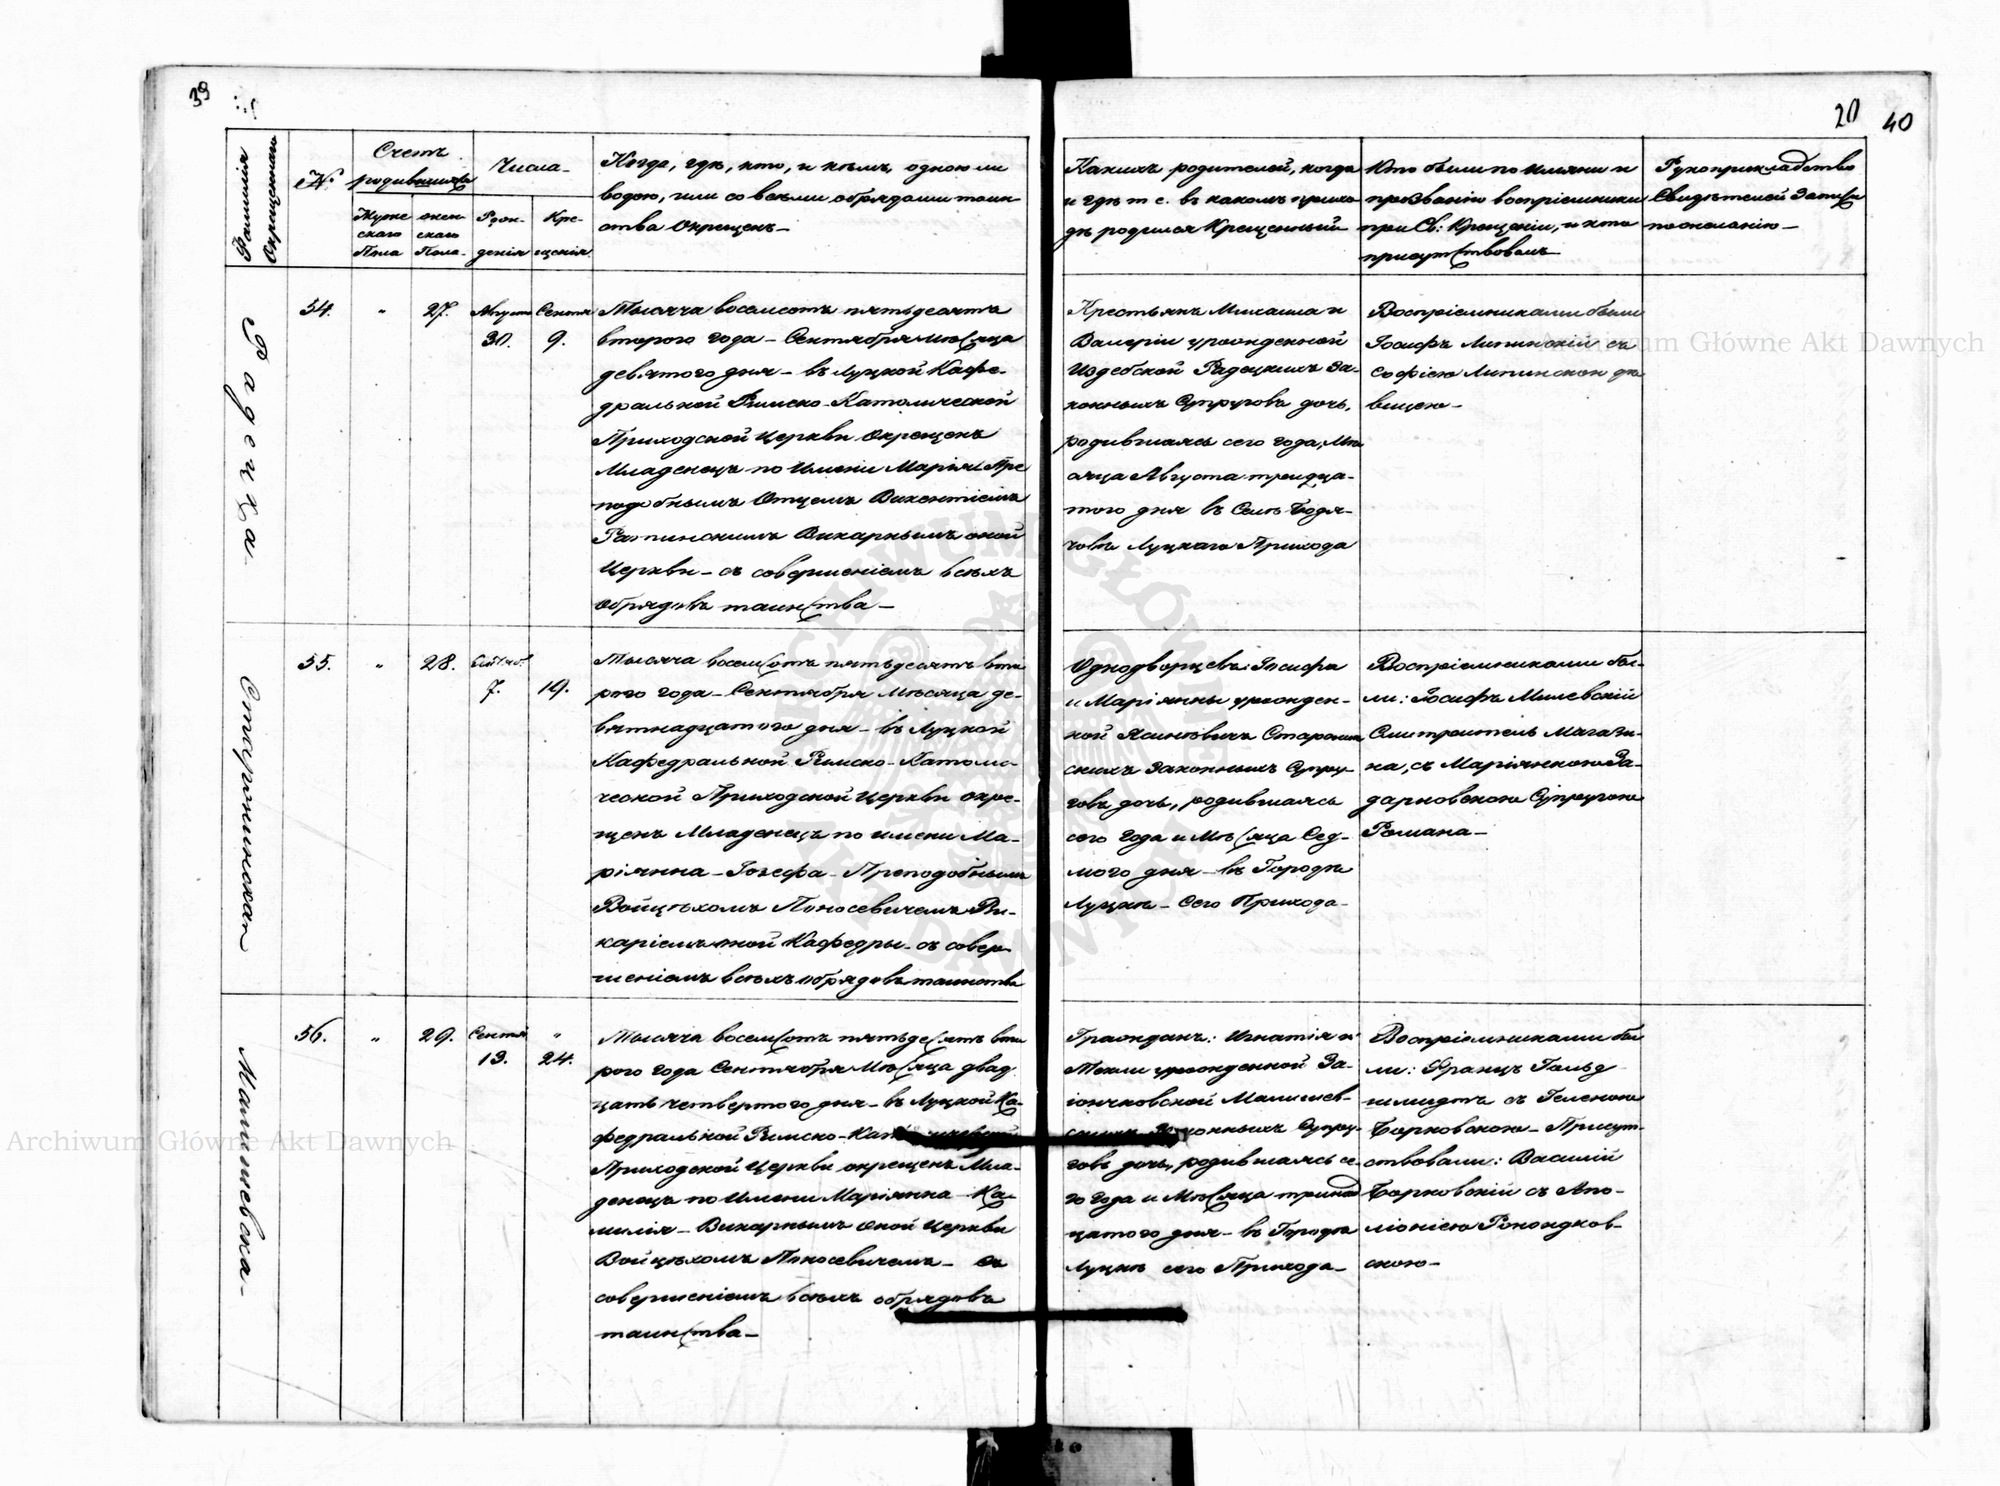 39
20
40
Фамилія
Окрещеннаго
№
Счетъ
родившихся
Муже
скаго
Пола
жен
скаго
Пола
Числа
Рож-
денія
Кре-
щенія
Когда, гдѣ, кто, и кѣмъ, одною ли
водою, или со всѣми обрядами таин
ства Окрещенъ
Какихъ родителей, когда
и гдѣ т. е. въ какомъ прихо
дѣ родился Крещенный
Кто были по имяни и
прозванію воспріемники
при Св: Крещеніи, и кто
присутствовалъ
Рукоприкладство
Свидѣтелей Записи
по желанію
Радецка
54.
"
27.
Августа
30.
Сентяб
9.
Тысяча восемсотъ пятьдесятъ
втораго года – Сентября мѣсяца
девятого дня – въ Луцкой Кафе-
дральной Римско-Католической
Приходской Церкви Окрещенъ
Младенецъ по Имени Марія Пре
подобнымъ Отцемъ Викентіемъ
Викарнымъ оной
Церкви – съ совершеніемъ всѣхъ
обрядовъ таинства –
Крестьянъ Михаила и
Валеріи урожденной
Издебской Радецкихъ За-
конныхъ Супруговъ дочь,
родившаяся сего года, Мѣ
сяца Августа тридца-
того дня въ Селѣ Бодя-
Луцкаго Прихода
Воспріемниками были
Іосифъ Липинскій съ
Софіею Липинскою дѣ
вицею –
55.
"
28.
7.
19.
Тысяча восемсотъ пятьдесятъ вто
раго года – Сентября Мѣсяца де-
вятнадцатого дня – въ Луцкой
Кафедральной Римско-Католи-
ческой Приходской Церкви окре-
щенъ Младенецъ по имени Ма-
ріянна – Іозефа – Преподобнымъ
Войцѣхомъ Поносевичемъ Ви-
каріемъ оной Кафедры – съ совер-
шеніемъ всѣхъ обрядовъ таинства
Однодворцевъ: Іосифа
и Маріянны урожден-
ной Ясиновичъ
скихъ Законныхъ Супру-
говъ дочь, родившаяся
сего Года и Мѣсяца Сед-
мого дня – въ Городѣ
Луцкѣ – Сего Прихода –
Воспріемниками бы-
ли: Іосифъ Милевскій
Смотритель Магази-
на, съ Маріянною За-
дарновскою Супругою
Романа –
Малишевска –
56.
"
29.
Сентяб
13.
"
24.
Тысяча восемсотъ пятьдесятъ вто
раго года Сентября Мѣсяца двад
цать четвертого дня – въ Луцкой Ка-
федральной Римско-Католической
Приходской Церкви окрещенъ Мла-
денецъ по Имени Маріянна – Ка-
милія – Викарнымъ оной Церкви
Войцѣхомъ Поносевичемъ – съ
совершеніемъ всѣхъ обрядовъ
таинства –
Гражданъ: Игнатія и
Теклы урожденной За-
іончковской Малишев-
скихъ Законныхъ Супру-
говъ дочь, родившаяся се-
го года и Мѣсяца тринад
цатого дня – въ Городѣ
Луцкѣ сего Прихода –
Воспріемниками бы
ли: Францъ Гольд
шмидтъ съ Геленою
Борковскою – Присут-
ствовали: Василій
Борковскій съ Апо-
лоніею
скою –
Archiwum Główne Akt Dawnych
Archiwum Główne Akt Dawnych